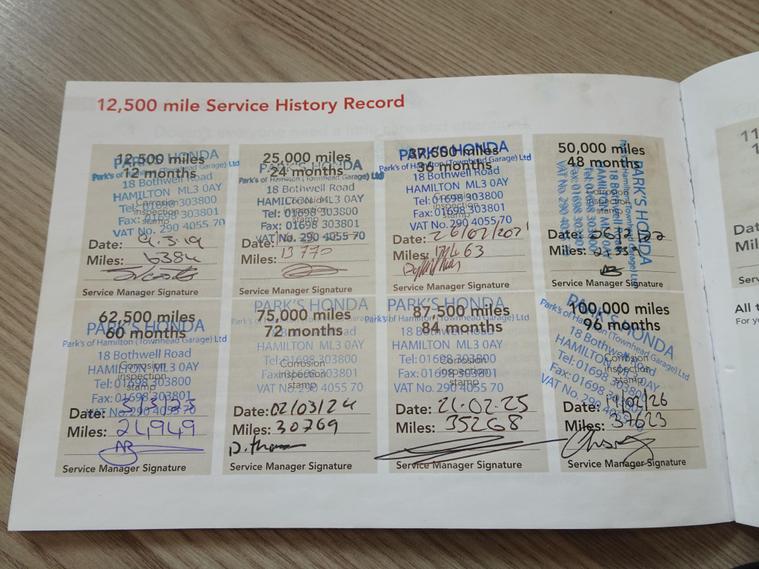 12,500 mile Service History Record
12,500 miles
12 months
PARK'S HONDA
Park's of Hamilton (Townhead Garage) Ltd
18 Bothwell Road
HAMILTON ML3 0AY
Tel: 01698 303800
Fax: 01698 303801
VAT No. 290 4055 70
Date:
Miles: 6384
Service Manager Signature
25,000 miles
24 months
PARK'S HONDA
Park's of Hamilton (Townhead Garage) Ltd
18 Bothwell Road
HAMILTON ML3 0AY
Corrosion
inspection
stamp
Tel: 01698 303800
Fax: 01698 303801
VAT No. 290 4055 70
Date:
Miles: 13770
Service Manager Signature
37,500 miles
36 months
PARK'S HONDA
Park's of Hamilton (Townhead Garage) Ltd
18 Bothwell Road
HAMILTON ML3 0AY
Tel: 01698 303800
Fax: 01698 303801
VAT No. 290 4055 70
Date:
Miles:
Service Manager Signature
50,000 miles
48 months
PARK'S HONDA
Corrosion
inspection
stamp
Date:
Miles:
Service Manager Signature
62,500 miles
60 months
PARK'S HONDA
Park's of Hamilton (Townhead Garage) Ltd
18 Bothwell Road
HAMILTON ML3 0AY
Corrosion
inspection
stamp
Tel: 01698 303800
Fax: 01698 303801
VAT No. 290 4055 70
Date:
Miles: 24949
Service Manager Signature
75,000 miles
72 months
PARK'S HONDA
Park's of Hamilton (Townhead Garage) Ltd
18 Bothwell Road
HAMILTON ML3 0AY
Corrosion
inspection
stamp
Tel: 01698 303800
Fax: 01698 303801
VAT No. 290 4055 70
Date: 02/03/24
Miles: 30769
Service Manager Signature
87,500 miles
84 months
PARK'S HONDA
Park's of Hamilton (Townhead Garage) Ltd
18 Bothwell Road
HAMILTON ML3 0AY
Corrosion
inspection
stamp
Tel: 01698 303800
Fax: 01698 303801
VAT No. 290 4055 70
Date: 21.02.25
Miles: 35268
Service Manager Signature
100,000 miles
96 months
PARK'S HONDA
Park's of Hamilton (Townhead Garage) Ltd
18 Bothwell Road
HAMILTON ML3 0AY
Corrosion
inspection
stamp
Tel: 01698 303800
Fax: 01698 303801
VAT No. 290 4055 70
Date:
Miles: 37623
Service Manager Signature
Dat
Mil
Serv
All t
For y